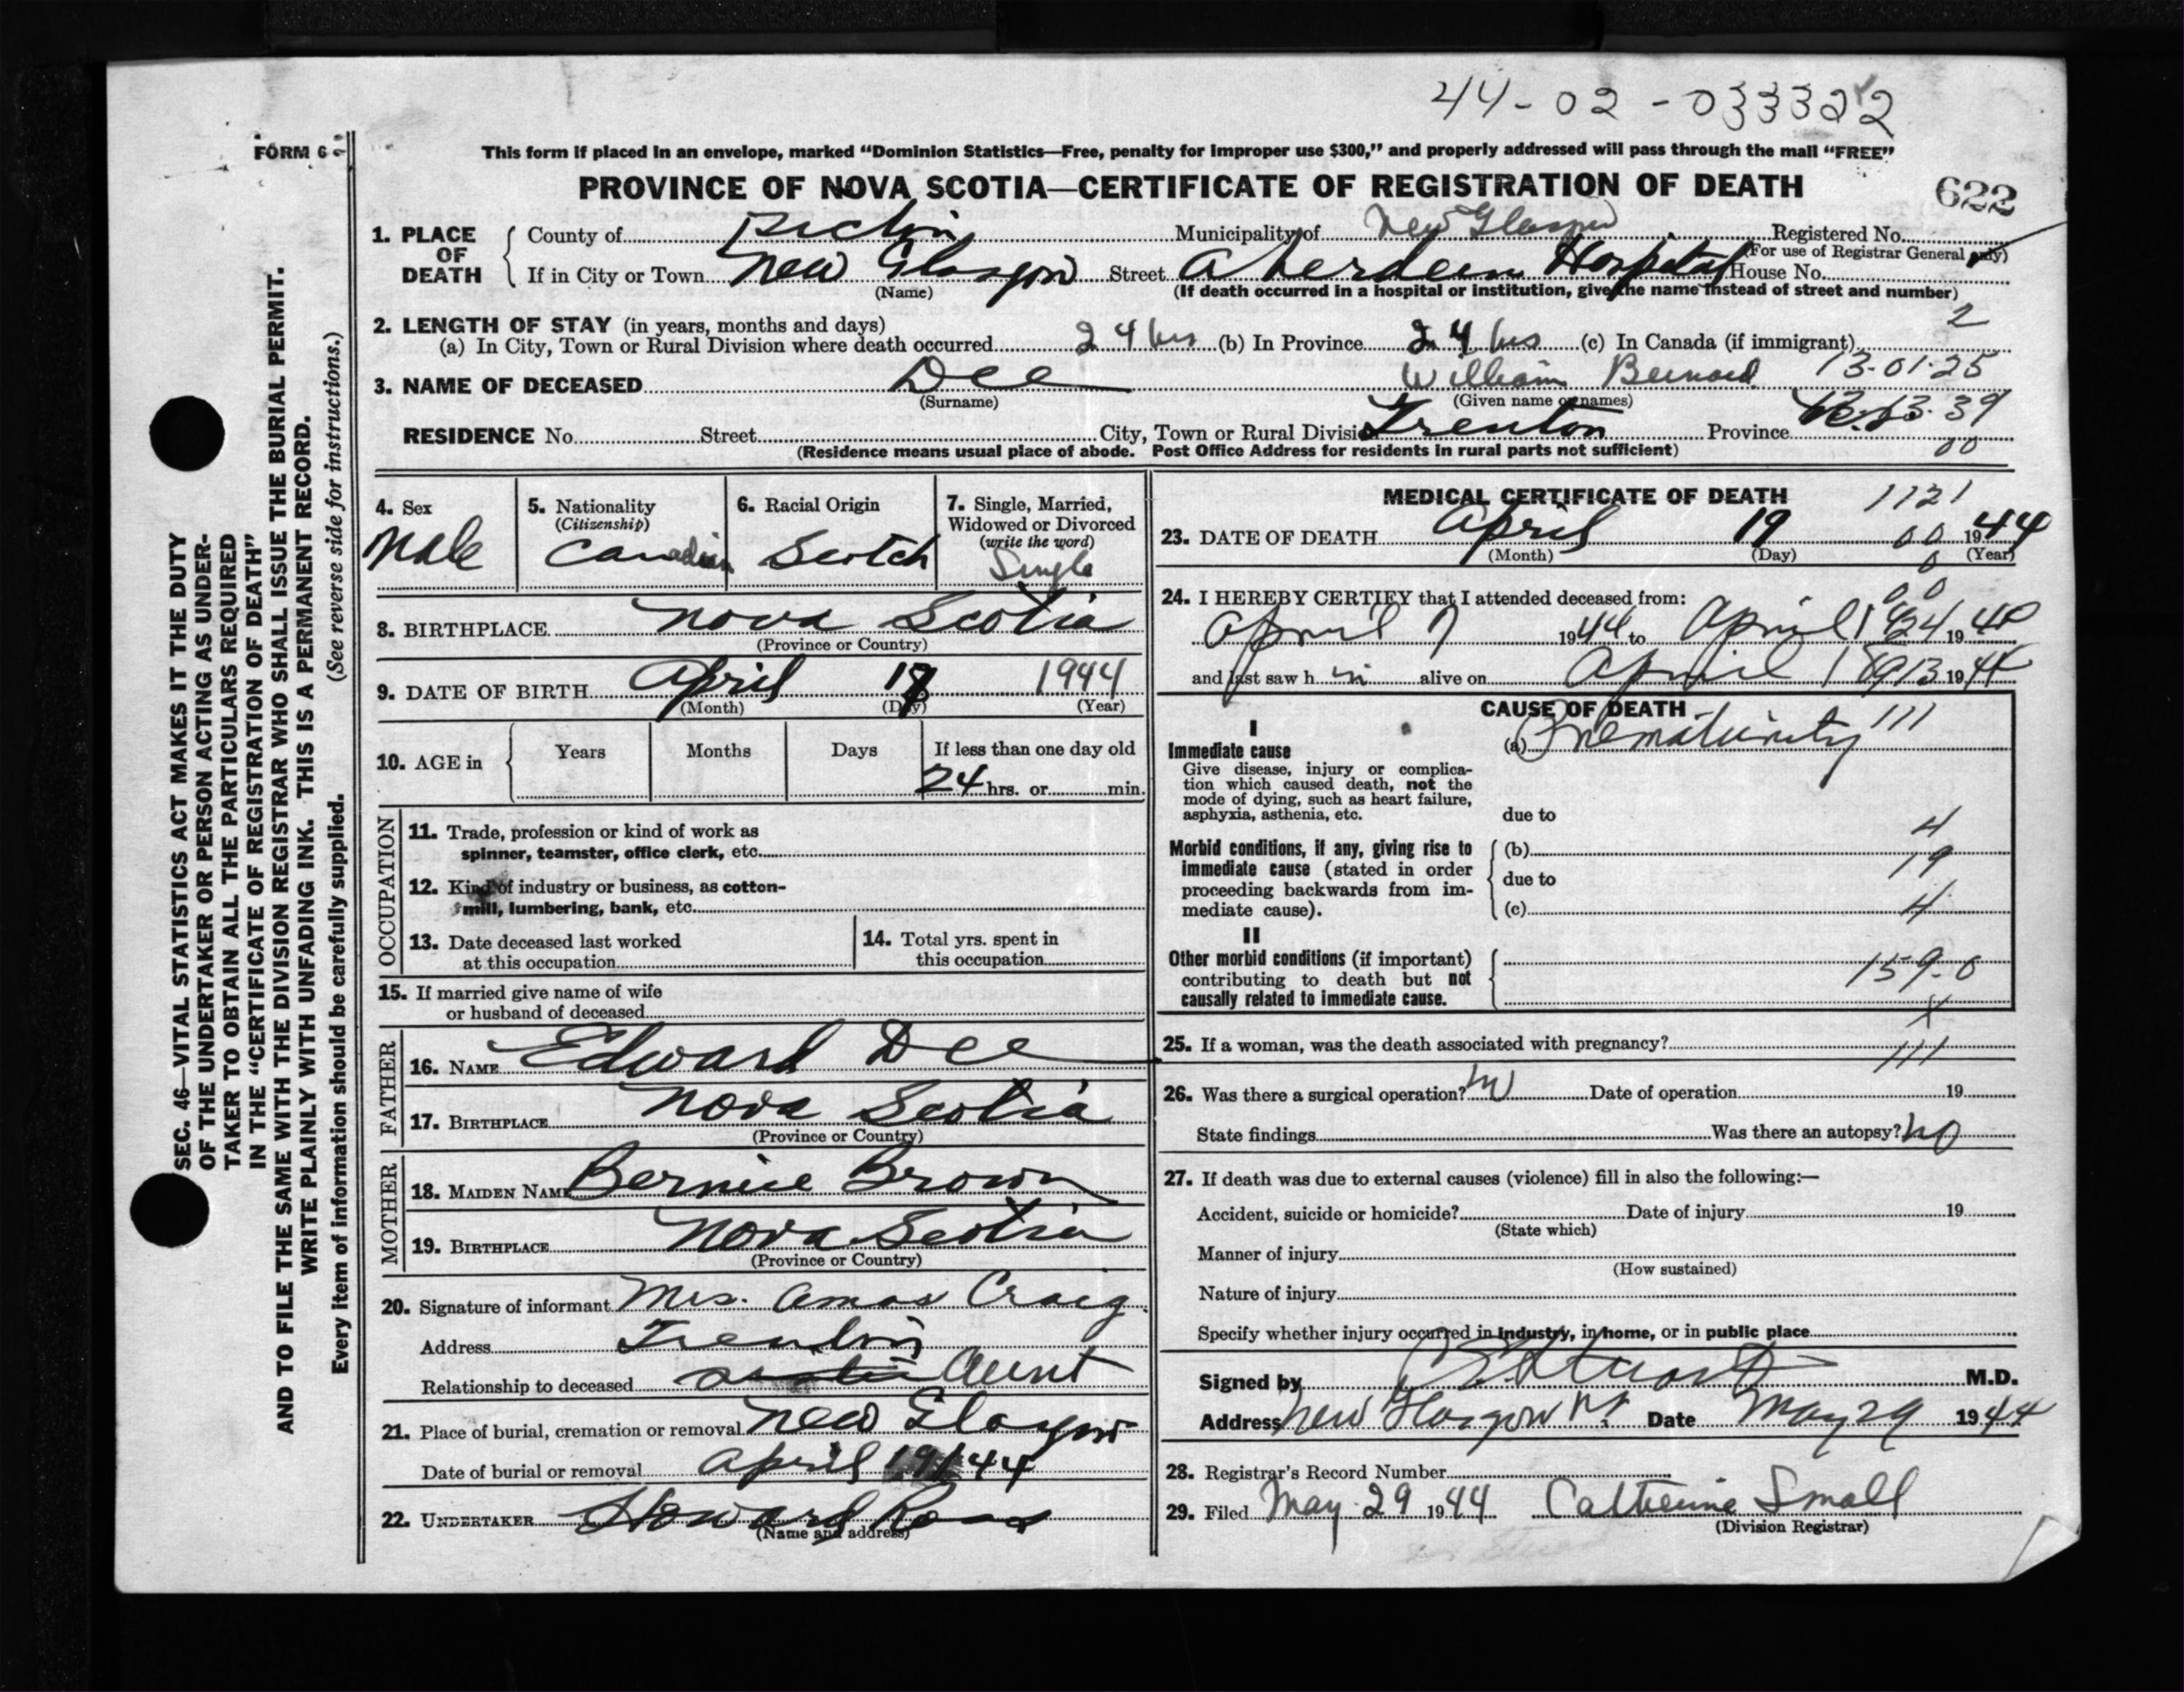 44-02-033322
FORM 6
This form if placed in an envelope, marked "Dominion Statistics—Free, penalty for improper use $300," and properly addressed will pass through the mail "FREE"
PROVINCE OF NOVA SCOTIA—CERTIFICATE OF REGISTRATION OF DEATH
622
1. PLACE OF DEATH
County of Pictou Municipality of New Glasgow Registered No.
(For use of Registrar General only)
If in City or Town New Glasgow Street Aberdeen Hospital House No.
(Name) (If death occurred in a hospital or institution, give the name instead of street and number)
2. LENGTH OF STAY (in years, months and days) 2
(a) In City, Town or Rural Division where death occurred 24 hrs (b) In Province 24 hrs (c) In Canada (if immigrant)
3. NAME OF DECEASED Dee William Bernard 13-01-25
(Surname) (Given name or names)
RESIDENCE No. Street City, Town or Rural Division Trenton Province 13-39
(Residence means usual place of abode. Post Office Address for residents in rural parts not sufficient) 00
4. Sex
Male
5. Nationality
(Citizenship)
Canadian
6. Racial Origin
Scotch
7. Single, Married,
Widowed or Divorced
(write the word)
Single
8. BIRTHPLACE Nova Scotia
(Province or Country)
9. DATE OF BIRTH April 1944
(Month) (Day) (Year)
10. AGE in Years Months Days If less than one day old
24 hrs. or min.
OCCUPATION
11. Trade, profession or kind of work as
spinner, teamster, office clerk, etc.
12. Kind of industry or business, as cotton-
mill, lumbering, bank, etc.
13. Date deceased last worked
at this occupation
14. Total yrs. spent in
this occupation
15. If married give name of wife
or husband of deceased
FATHER
16. NAME Edward Dee
17. BIRTHPLACE Nova Scotia
(Province or Country)
MOTHER
18. MAIDEN NAME Bernice Brown
19. BIRTHPLACE Nova Scotia
(Province or Country)
20. Signature of informant Mrs. Amos Craig
Address Trenton
Relationship to deceased Aunt
21. Place of burial, cremation or removal New Glasgow
Date of burial or removal April 19/44
22. UNDERTAKER Howard Ross
(Name and address)
MEDICAL CERTIFICATE OF DEATH 1121
23. DATE OF DEATH April 19 00 1944
(Month) (Day) (Year)
0
24. I HEREBY CERTIFY that I attended deceased from: 00
April 7 1944 to April 19
and last saw h im alive on April 18 1944
CAUSE OF DEATH
I
Immediate cause
Give disease, injury or complica-
tion which caused death, not the
mode of dying, such as heart failure,
asphyxia, asthenia, etc.
(a) Prematurity 111
due to
4
Morbid conditions, if any, giving rise to
immediate cause (stated in order
proceeding backwards from im-
mediate cause).
(b)
19
due to
(c) 4
II
Other morbid conditions (if important)
contributing to death but not
causally related to immediate cause.
159-0
X
25. If a woman, was the death associated with pregnancy?
111
26. Was there a surgical operation? no Date of operation 19
State findings Was there an autopsy? no
27. If death was due to external causes (violence) fill in also the following:—
Accident, suicide or homicide? Date of injury 19
(State which)
Manner of injury
(How sustained)
Nature of injury
Specify whether injury occurred in industry, in home, or in public place
Signed by Stuart M.D.
Address New Glasgow NS Date May 29 1944
28. Registrar's Record Number
29. Filed May 29 1944 Catherine Small
(Division Registrar)
SEC. 46—VITAL STATISTICS ACT MAKES IT THE DUTY
OF THE UNDERTAKER OR PERSON ACTING AS UNDER-
TAKER TO OBTAIN ALL THE PARTICULARS REQUIRED
IN THE "CERTIFICATE OF REGISTRATION OF DEATH"
AND TO FILE THE SAME WITH THE DIVISION REGISTRAR WHO SHALL ISSUE THE BURIAL PERMIT.
WRITE PLAINLY WITH UNFADING INK. THIS IS A PERMANENT RECORD.
Every item of information should be carefully supplied. (See reverse side for instructions.)